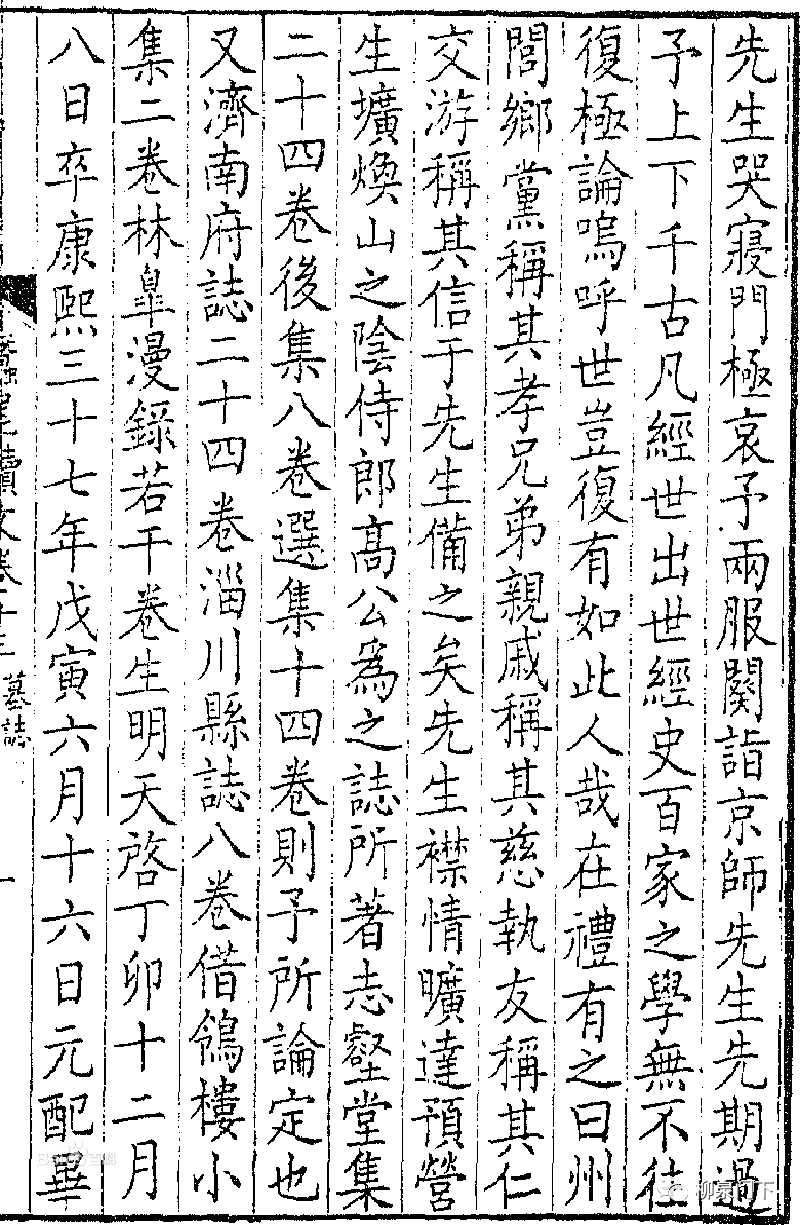 先生哭寢門極哀予兩服闋詣京師先生先期過
予上下千古凡經世出世經史百家之學無不往
復極論嗚呼世豈復有如此人哉在禮有之曰州
閭鄉黨稱其孝兄弟親戚稱其慈執友稱其仁
交游稱其信于先生備之矣先生襟情曠達預營
生壙煥山之陰侍郎高公為之誌所著志壑堂集
二十四卷後集八卷選集十四卷則予所論定也
又濟南府誌二十四卷淄川縣誌八卷借鴿樓小
集二卷林皐漫錄若干卷生明天啓丁卯十二月
八日卒康熙三十七年戊寅六月十六日元配畢
蠶尾續文卷十三 墓誌
柳泉門下